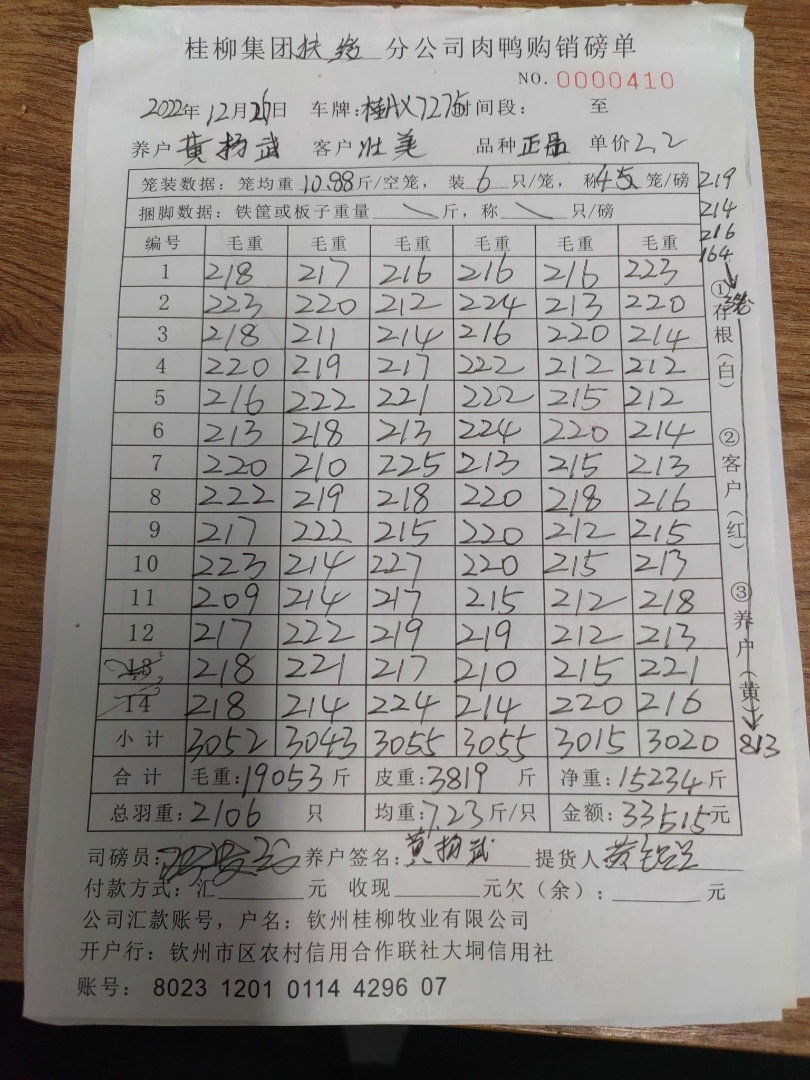 桂柳集团扶绥分公司肉鸭购销磅单
NO. 0000410
2022年12月26日 车牌:桂AX7275时间段: 至
养户 黄扬武 客户 壮美 品种 正品 单价2.2
笼装数据:笼均重 10.88斤/空笼,装 6 只/笼,称 4.5 笼/磅 219
捆脚数据:铁筐或板子重量 斤,称 只/磅 214
编号 毛重 毛重 毛重 毛重 毛重 毛重 216
164
1 218 217 216 216 216 223
2 223 220 212 224 213 220
3 218 211 214 216 220 214
4 220 219 217 222 212 212
5 216 222 221 222 215 212
6 213 218 213 224 220 214
7 220 210 225 213 215 213
8 222 219 218 220 218 216
9 217 222 215 220 212 215
10 223 214 227 220 215 213
11 209 214 217 215 212 218
12 217 222 219 219 212 213
13 218 221 217 210 215 221
14 218 214 224 214 220 216
小计 3052 3043 3055 3055 3015 3020 813
合计 毛重:19053斤 皮重:3819 斤 净重:15234斤
总羽重:2106 只 均重:7.23斤/只 金额:33515元
司磅员: 养户签名:黄扬武 提货人
付款方式:汇 元 收现 元欠(余): 元
公司汇款账号,户名:钦州桂柳牧业有限公司
开户行:钦州市区农村信用合作联社大垌信用社
账号: 8023 1201 0114 4296 07
①存根(白) ②客户(红) ③养户(黄)